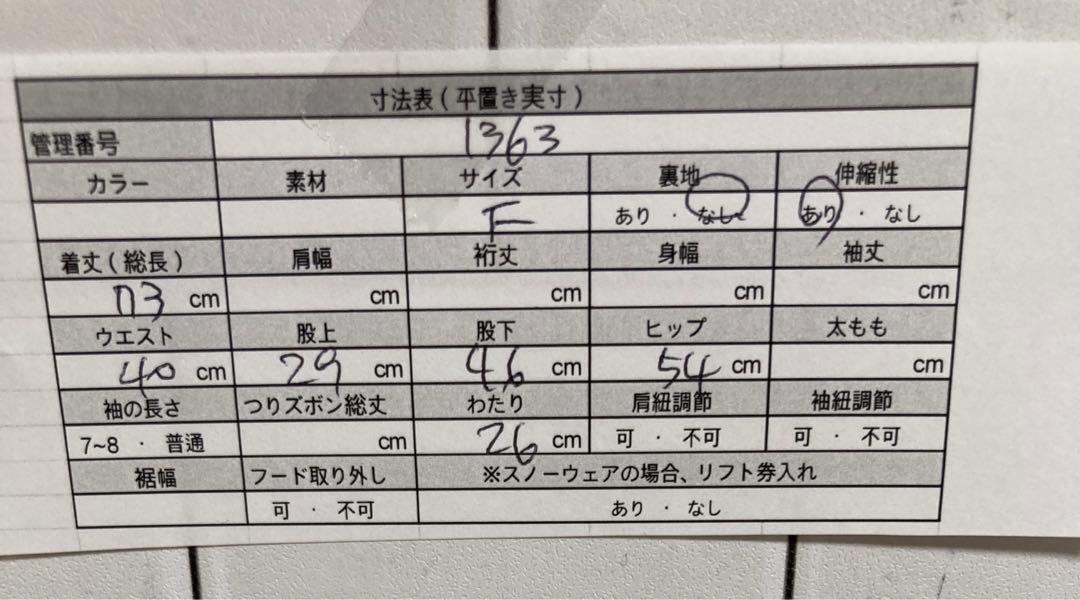 寸法表(平置き実寸)
管理番号 1363
カラー 素材 サイズ 裏地 伸縮性
F あり・なし あり・なし
着丈(総長) 肩幅 裄丈 身幅 袖丈
73 cm cm cm cm cm
ウエスト 股上 股下 ヒップ 太もも
40 cm 29 cm 46 cm 54 cm cm
袖の長さ つりズボン総丈 わたり 肩紐調節 袖紐調節
7~8・普通 cm 26 cm 可・不可 可・不可
裾幅 フード取り外し ※スノーウェアの場合、リフト券入れ
可・不可 あり・なし